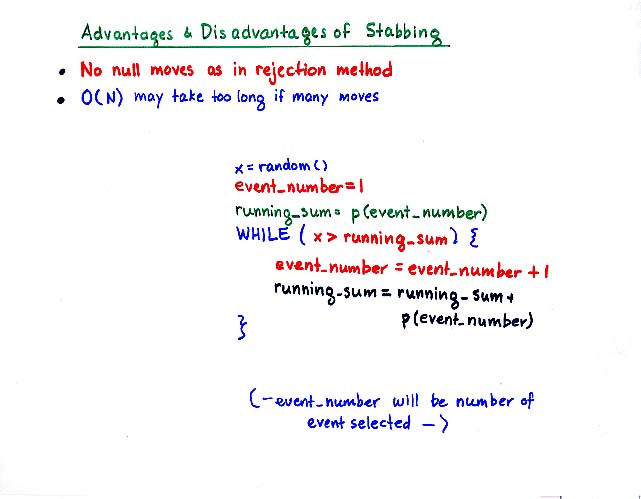 Advantages & Disadvantages of Stabbing
• No null moves as in rejection method
• O(N) may take too long if many moves
x = random()
event_number = 1
running_sum = p(event_number)
WHILE ( x > running_sum) {
event_number = event_number + 1
running_sum = running_sum +
p(event_number)
}
(- event_number will be number of
event selected -)